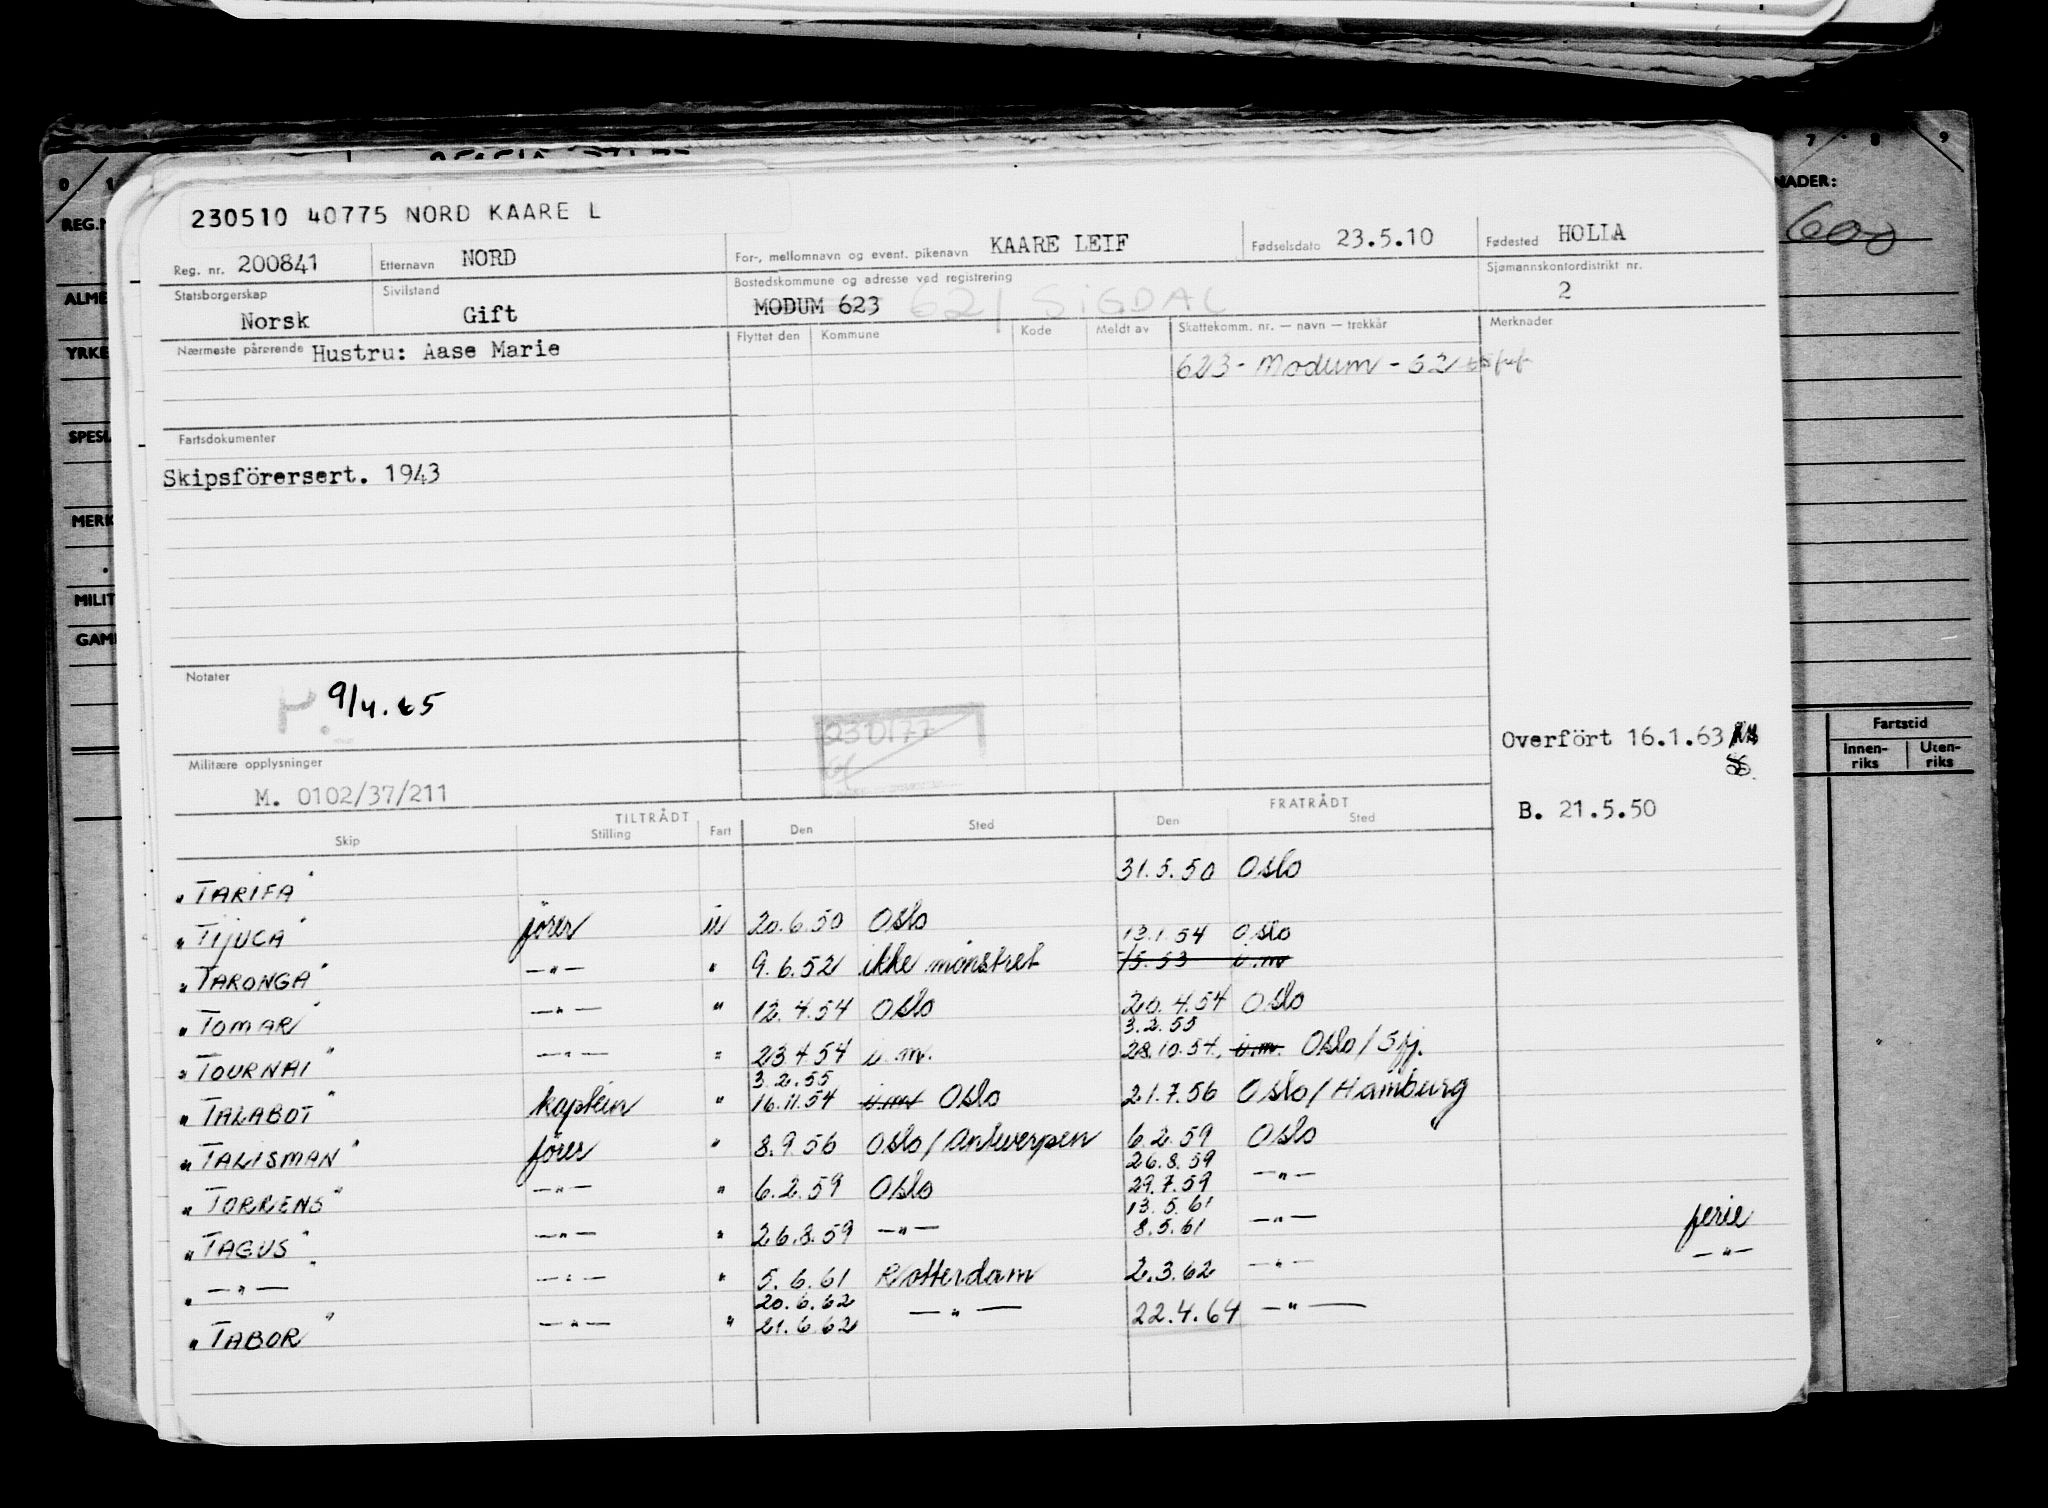 230510 40775 NORD KAARE L
Reg. nr. 200841 Etternavn NORD For-, mellomnavn og event. pikenavn KAARE LEIF Fødselsdato 23.5.10 Fødested HOLLA
Statsborgerskap Norsk Sivilstand Gift Bostedskommune og adresse ved registrering MODUM 623 621 SIGDAL Sjømannskontordistrikt nr. 2
Nærmeste pårørende Hustru: Aase Marie Flyttet den Kommune Kode Meldt av Skattekomm. nr. — navn — trekkår Merknader
623 - Modum - 62
Fartsdokumenter
Skipsförersert. 1943
Notater
9/4.65
230177
Overfört 16.1.63
Militære opplysninger
M. 0102/37/211
B. 21.5.50
TILTRÅDT FRATRÅDT
Skip Stilling Fart Den Sted Den Sted
"TARIFA" 31.5.50 Oslo
"TIJUCA" förer u 20.6.50 Oslo 13.1.54 Oslo
"TARONGA" —"— " 9.6.52 ikke mönstret 15.53 u.m
"TOMAR" —"— " 12.4.54 Oslo 20.4.54 Oslo
3.2.55
"TOURNAI" —"— " 23.4.54 u.m. 28.10.54, u.m. Oslo/Sfj.
3.2.55
"TALABOT" kaptein " 16.11.54 u.m Oslo 21.7.56 Oslo/Hamburg
"TALISMAN" förer " 8.9.56 Oslo/Antwerpen 6.2.59 Oslo
26.8.59
"TORRENS" —"— " 6.2.59 Oslo 29.7.59 —"—
13.5.61
"TAGUS" —"— " 26.8.59 —"— 8.5.61 —"— ferie
" —"— " —"— " 5.6.61 Rotterdam 2.3.62 —"— —"—
20.6.62
"TABOR" —"— " 21.6.62 —"— 22.4.64 —"—
0 1 7 8 9
REG.N
NADER:
600
ALME
YRKE
SPESI
MERK
MILIT
GAM
Fartstid
Innen-riks Uten-riks